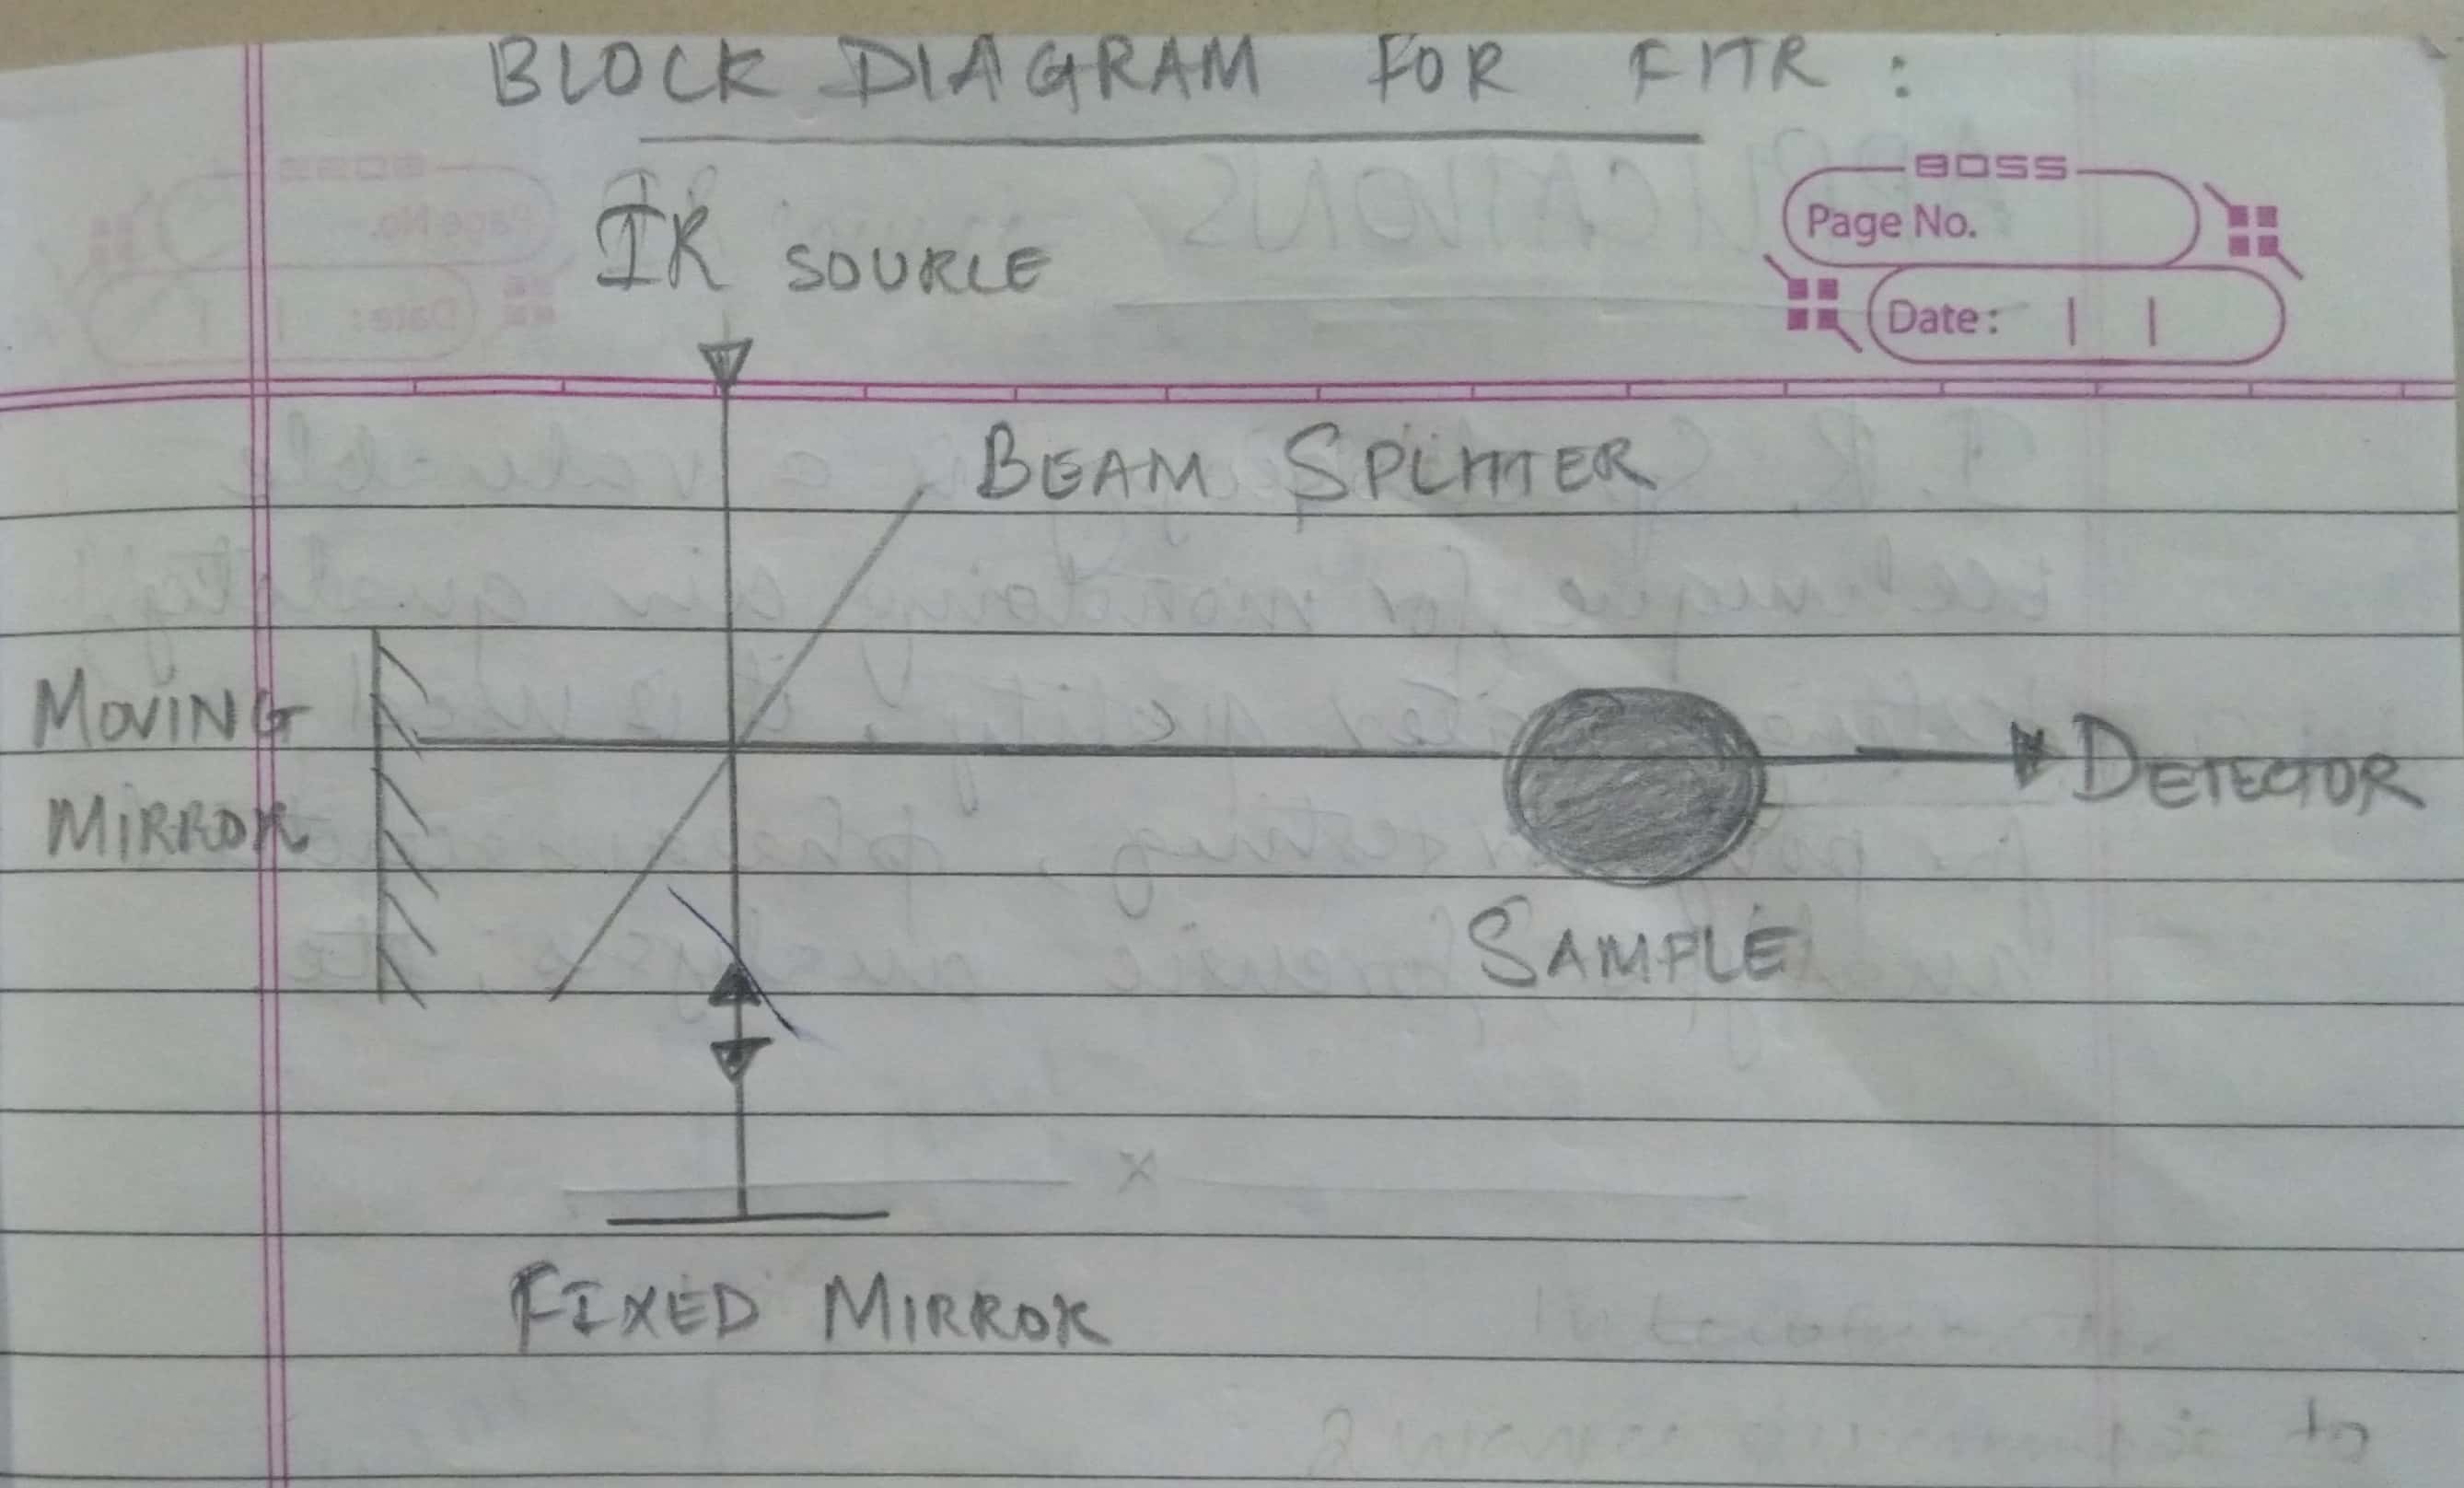 BLOCK DIAGRAM FOR FTIR :
BOSS
Page No.
IR SOURCE
Date:
BEAM SPLITTER
MOVING
MIRROR
DETECTOR
SAMPLE
x
FIXED MIRROR